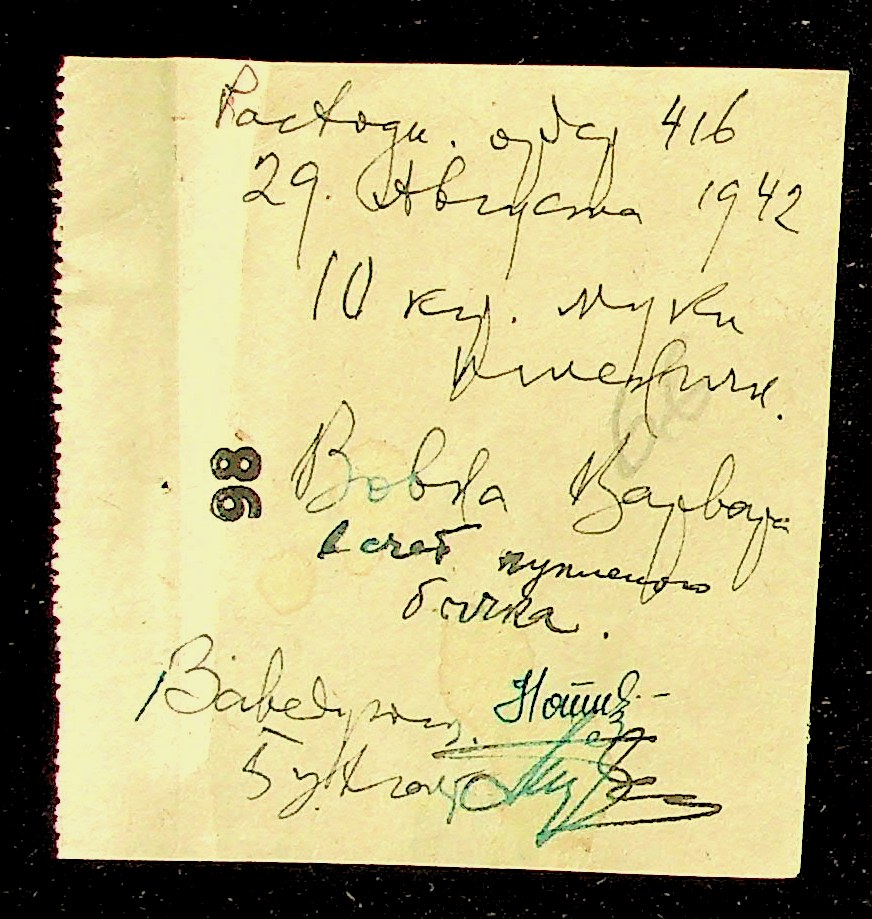 Расходн. ордер 416
29. Августа 1942
10 кг. муки
пшеничн.
98
Вовна Варвара
в счет купленого
бычка.
Заведующ.
Бухгалтер